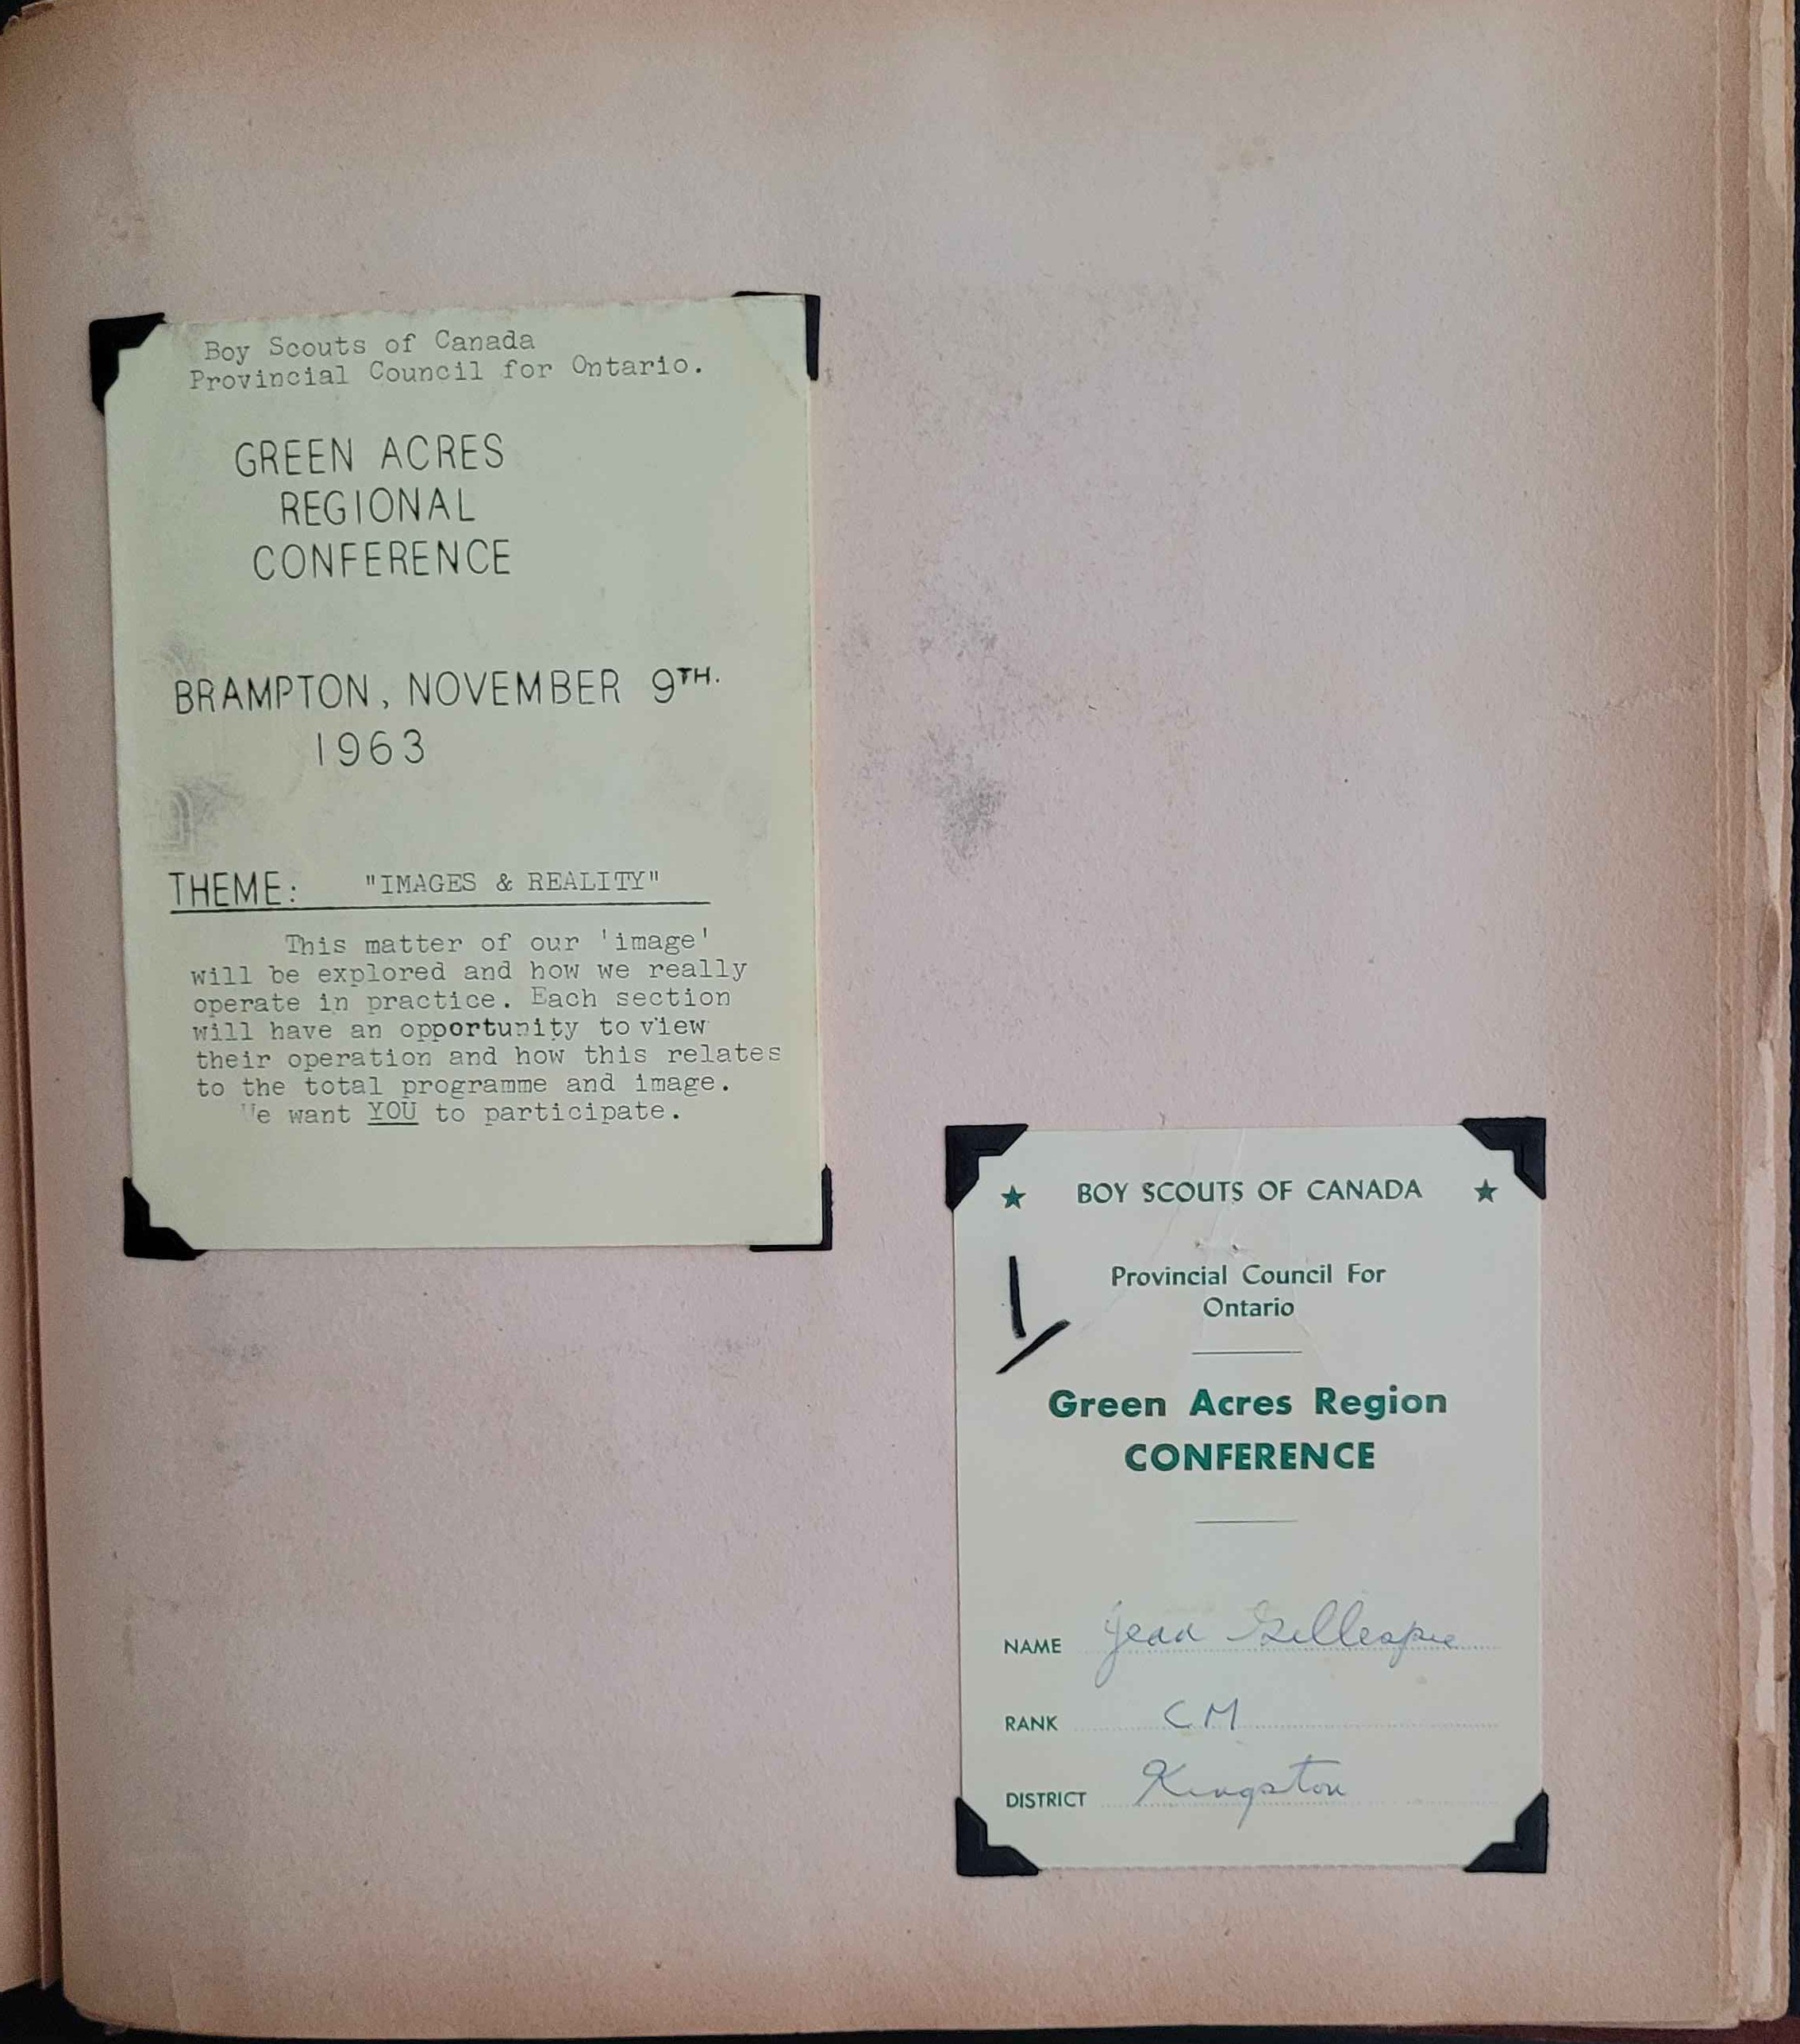 Boy Scouts of Canada
Provincial Council for Ontario.
GREEN ACRES
REGIONAL
CONFERENCE
BRAMPTON, NOVEMBER 9TH.
1963
THEME: "IMAGES & REALITY"
This matter of our 'image'
will be explored and how we really
operate in practice. Each section
will have an opportunity to view
their operation and how this relates
to the total programme and image.
We want YOU to participate.
★ BOY SCOUTS OF CANADA ★
Provincial Council For
Ontario
Green Acres Region
CONFERENCE
NAME Jean Gillespie
RANK CM
DISTRICT Kingston